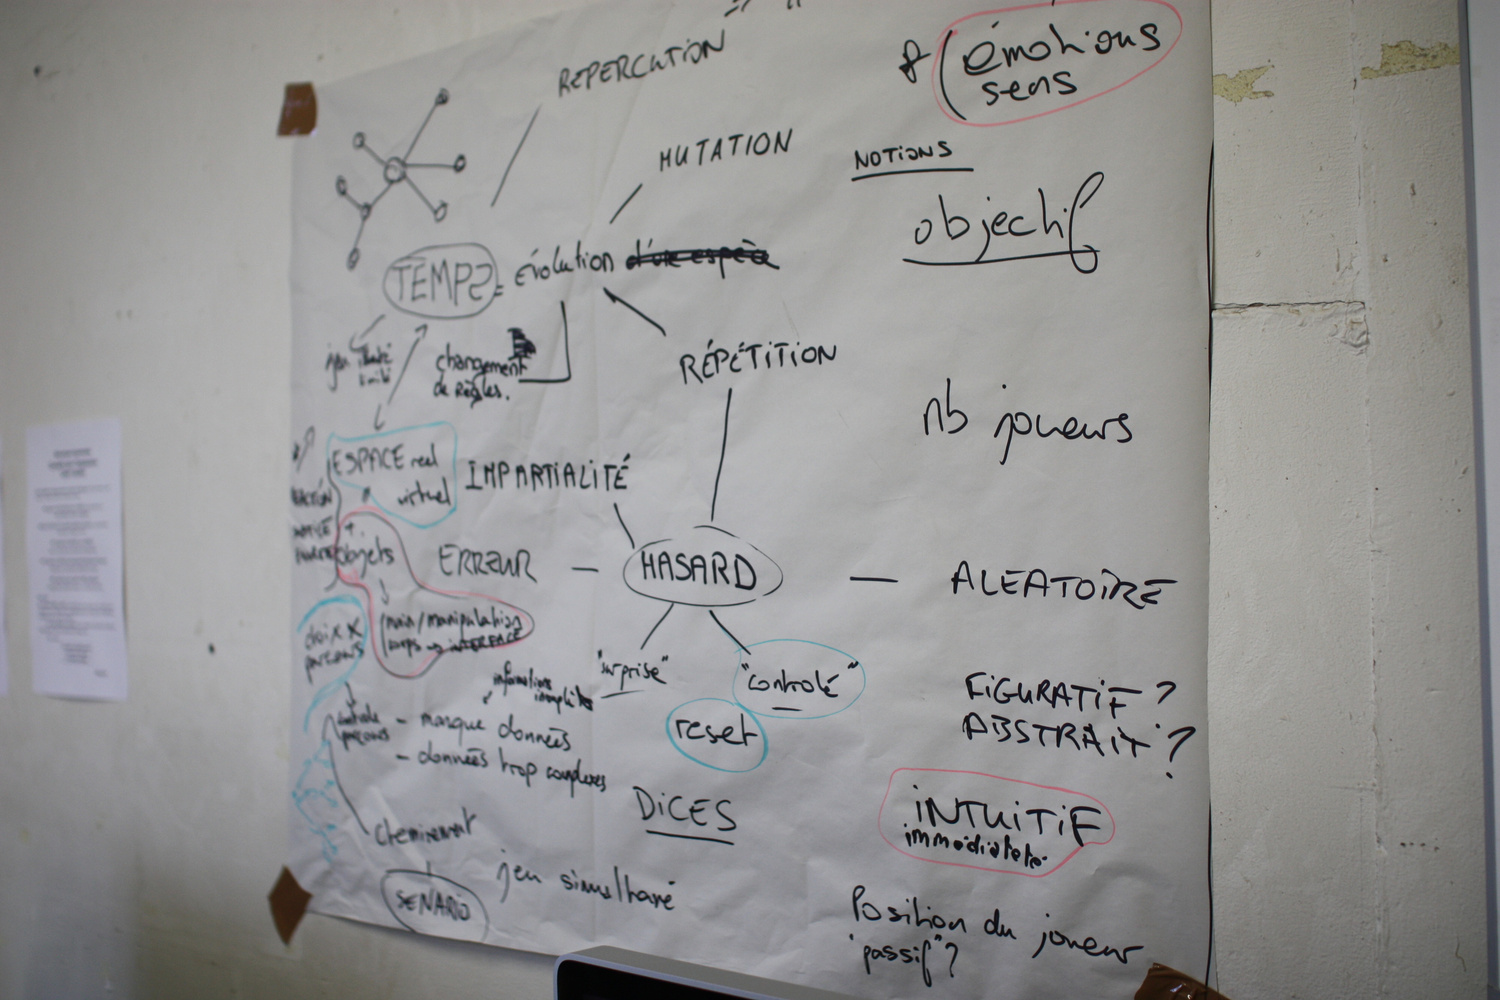 REPERCUTION
& (émotions
sens
MUTATION
NOTIONS
objectif
TEMPS = évolution d'une espèce
jeu limité
changement
de Règles.
RÉPÉTITION
nb joueurs
ESPACE réel
virtuel
IMPARTIALITÉ
+
objets
ERREUR — HASARD — ALEATOIRE
main/manipulation
corps → INTERFACE
choix x
parcours
"surprise"
"controlé"
informations
incomplètes
FiGURATiF ?
ABSTRAiT ?
reset
- masque données
- données trop complexes
DiCES
iNTUiTiF
immédiateté.
Cheminement
SENARIO
jeu simultané
Position du joueur
"passif"?